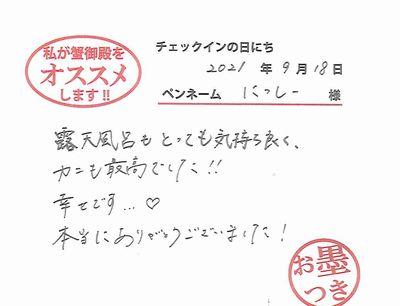 私が蟹御殿を
オススメ
します!!
チェックインの日にち
2021 年 9 月 18 日
ペンネーム にっしー 様
露天風呂もとっても気持ち良く、
カニも最高でした!!
幸せです...♡
本当にありがとうございました!
お墨
つき